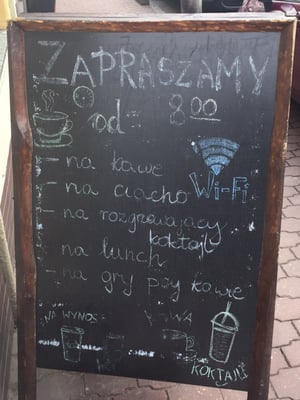 ZAPRASZAMY
od - 8.00
- na kawę
- na ciacho Wi-Fi
- na rozgrzewający
koktajl
na lunch
- na gry przy kawie
NA WYNOS
KOKTAJL